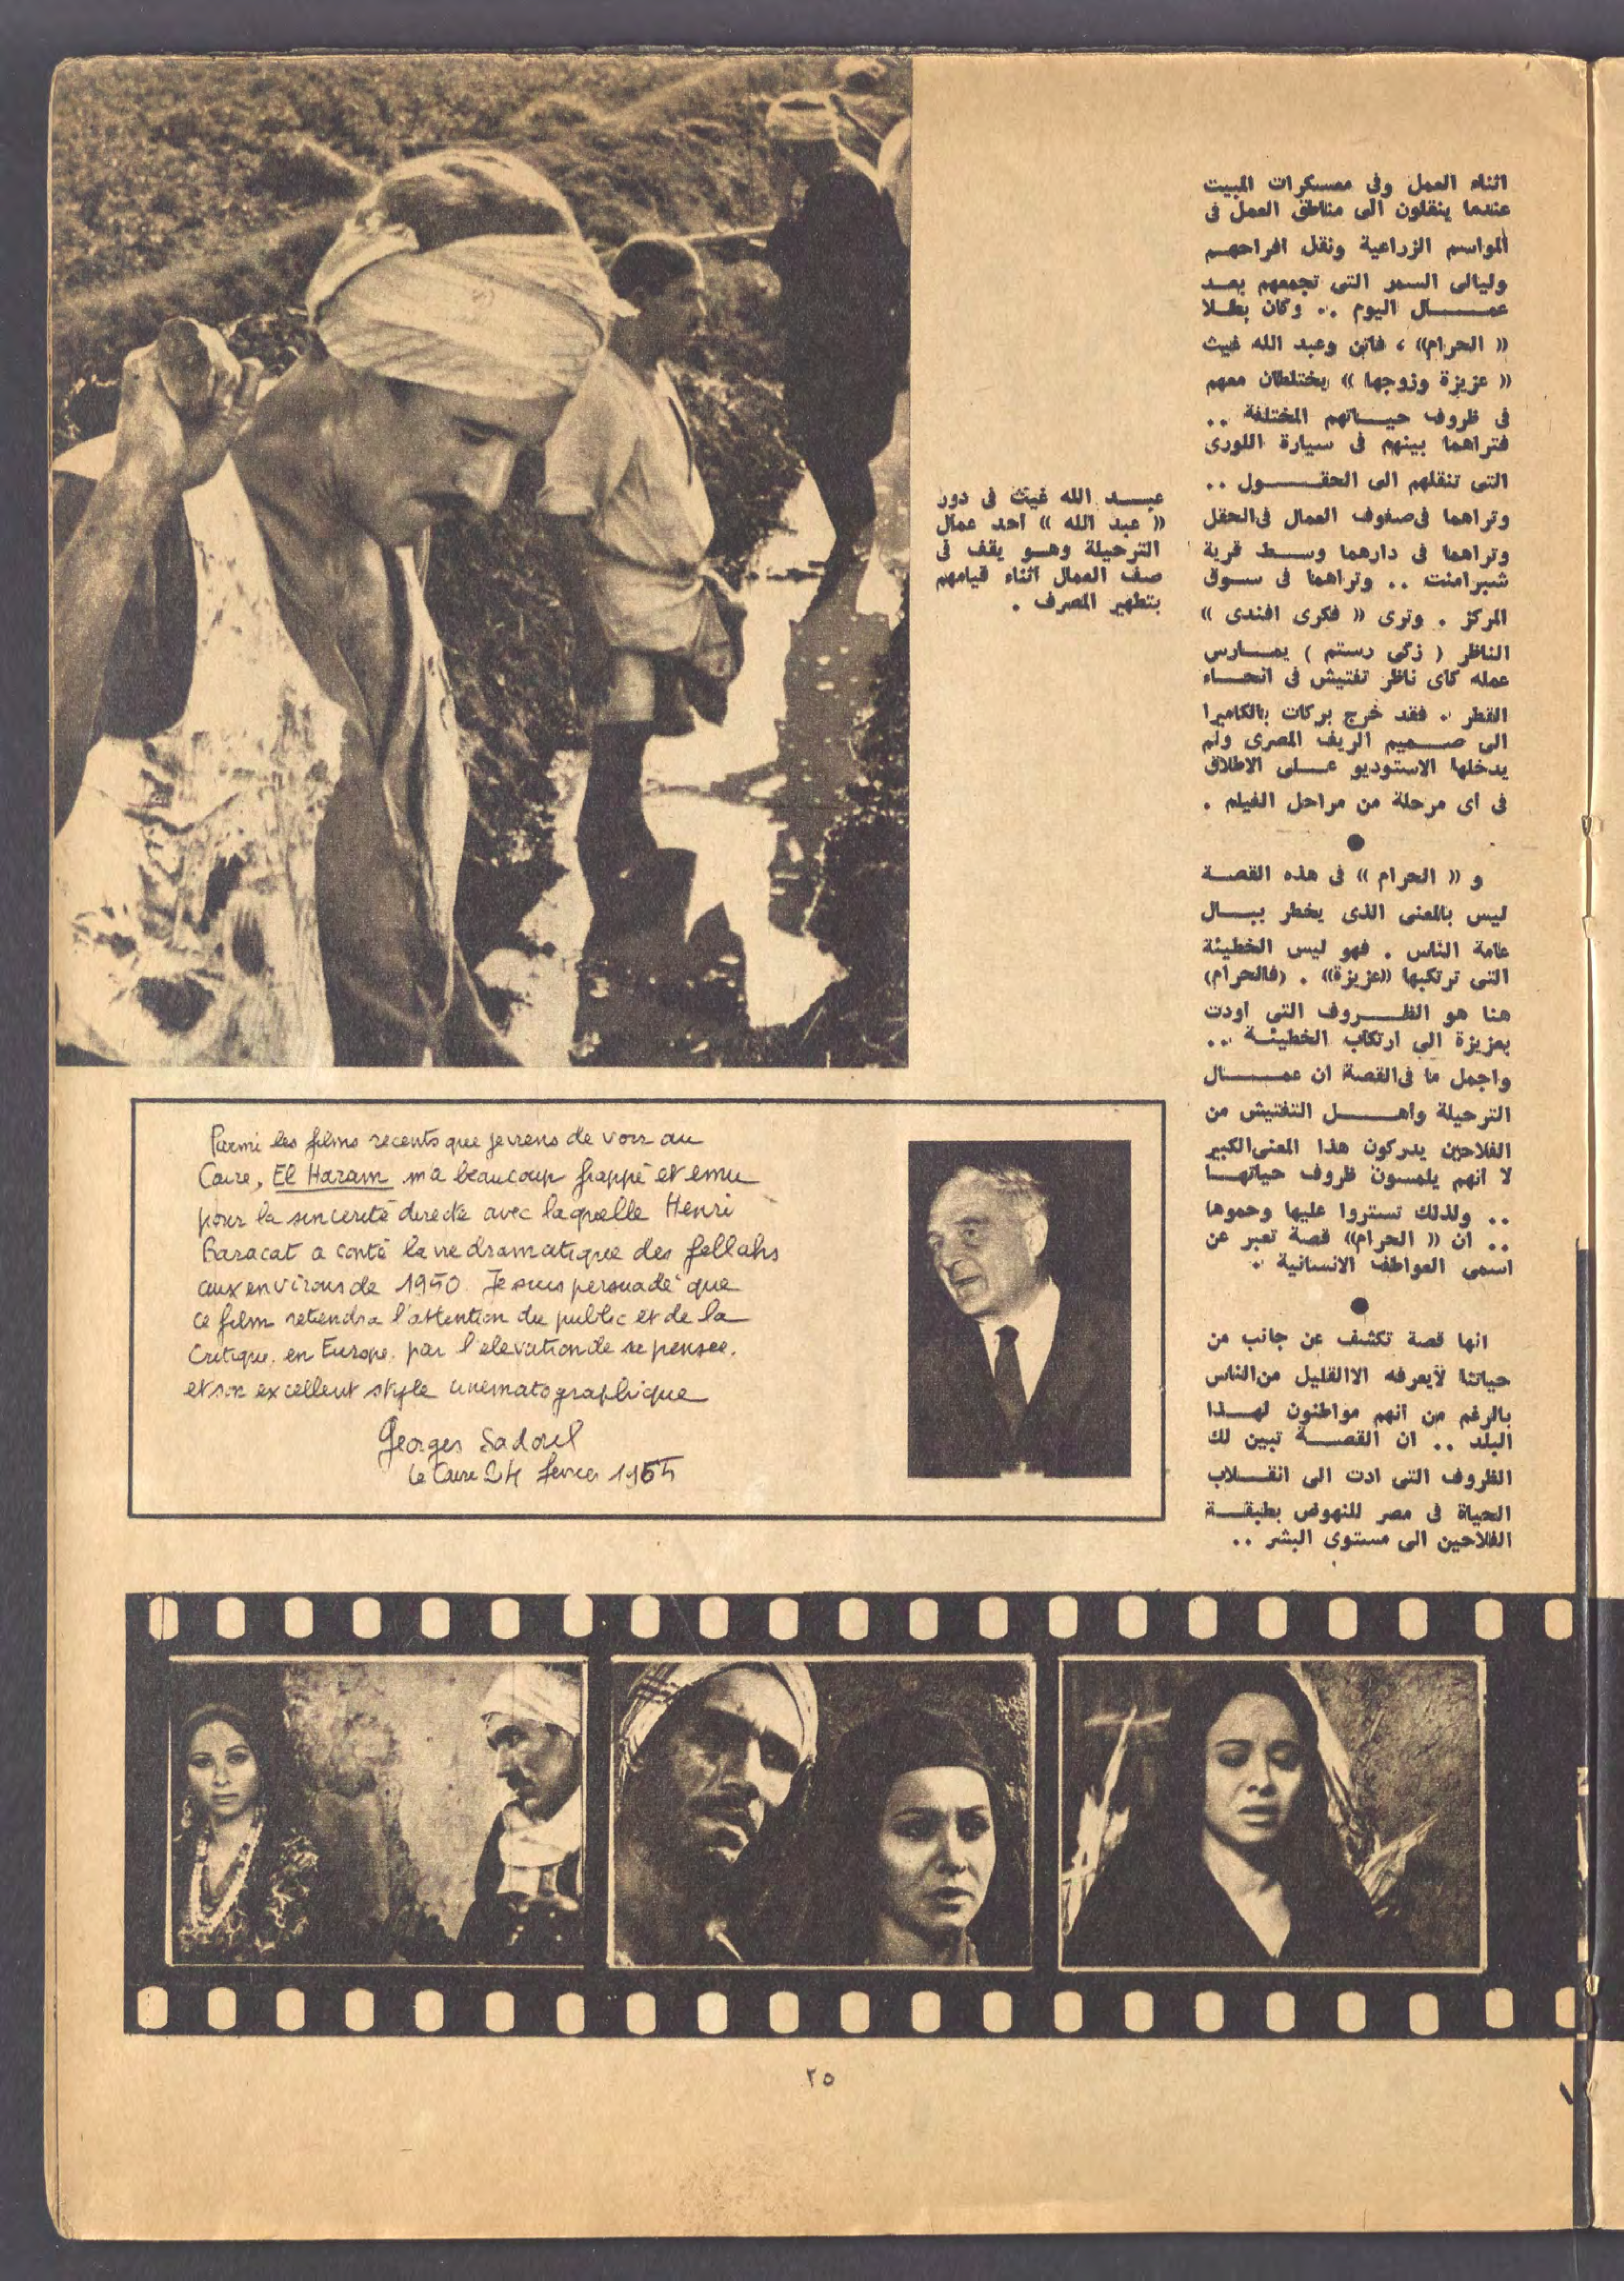 اثناء العمل وفى معسكرات المبيت
عندما ينقلون الى مناطق العمل فى
المواسم الزراعية ونقل افراحهم
وليالى السمر التى تجمعهم بعد
عمال اليوم .. وكان بطلا
« الحرام» ، فاتن وعبد الله غيث
« عزيزة وزوجها » يختلطان معهم
فى ظروف حياتهم المختلفة ..
فتراهما بينهم فى سيارة اللورى
التى تنقلهم الى الحقول ..
وتراهما فى صفوف العمال فى الحقل
وتراهما فى دارهما وسط قرية
شبرامنت .. وتراهما فى سوق
المركز . وترى « فكرى افندى »
الناظر ( زكى رستم ) يمارس
عمله كاى ناظر تفتيش فى انحاء
القطر . فقد خرج بركات بالكاميرا
الى صميم الريف المصرى ولم
يدخلها الاستوديو على الاطلاق
فى اى مرحلة من مراحل الفيلم .
و « الحرام » فى هذه القصة
ليس بالمعنى الذى يخطر ببال
عامة الناس . فهو ليس الخطيئة
التى ترتكبها «عزيزة» . (فالحرام)
هنا هو الظروف التى اودت
بعزيزة الى ارتكاب الخطيئة ..
واجمل ما فى القصة ان عمال
الترحيلة واهل التفتيش من
الفلاحين يدركون هذا المعنى الكبير
لا انهم يلمسون ظروف حياتها
.. ولذلك تستروا عليها وحموها
.. ان « الحرام» قصة تعبر عن
اسمى العواطف الانسانية .
انها قصة تكشف عن جانب من
حياتنا لايعرفه الاالقليل من الناس
بالرغم من انهم مواطنون لهذا
البلد .. ان القصة تبين لك
الظروف التى ادت الى انقلاب
الحياة فى مصر للنهوض بطبقة
الفلاحين الى مستوى البشر ..
عبد الله غيث فى دور
« عبد الله » احد عمال
الترحيلة وهو يقف فى
صف العمال اثناء قيامهم
بتطهير المصرف .
Parmi les films recents que je viens de voir au
Caire, El Haram m'a beaucoup frappé et emu
pour la sincerité directe avec laquelle Henri
Baracat a conté la vie dramatique des fellahs
aux environs de 1950. Je suis persuadé que
ce film retiendra l'attention du public et de la
Critique. en Europe. par l'elevation de sa pensee.
et son excellent style cinematographique
Georges Sadoul
Le Caire 24 fevrier 1965
٢٥